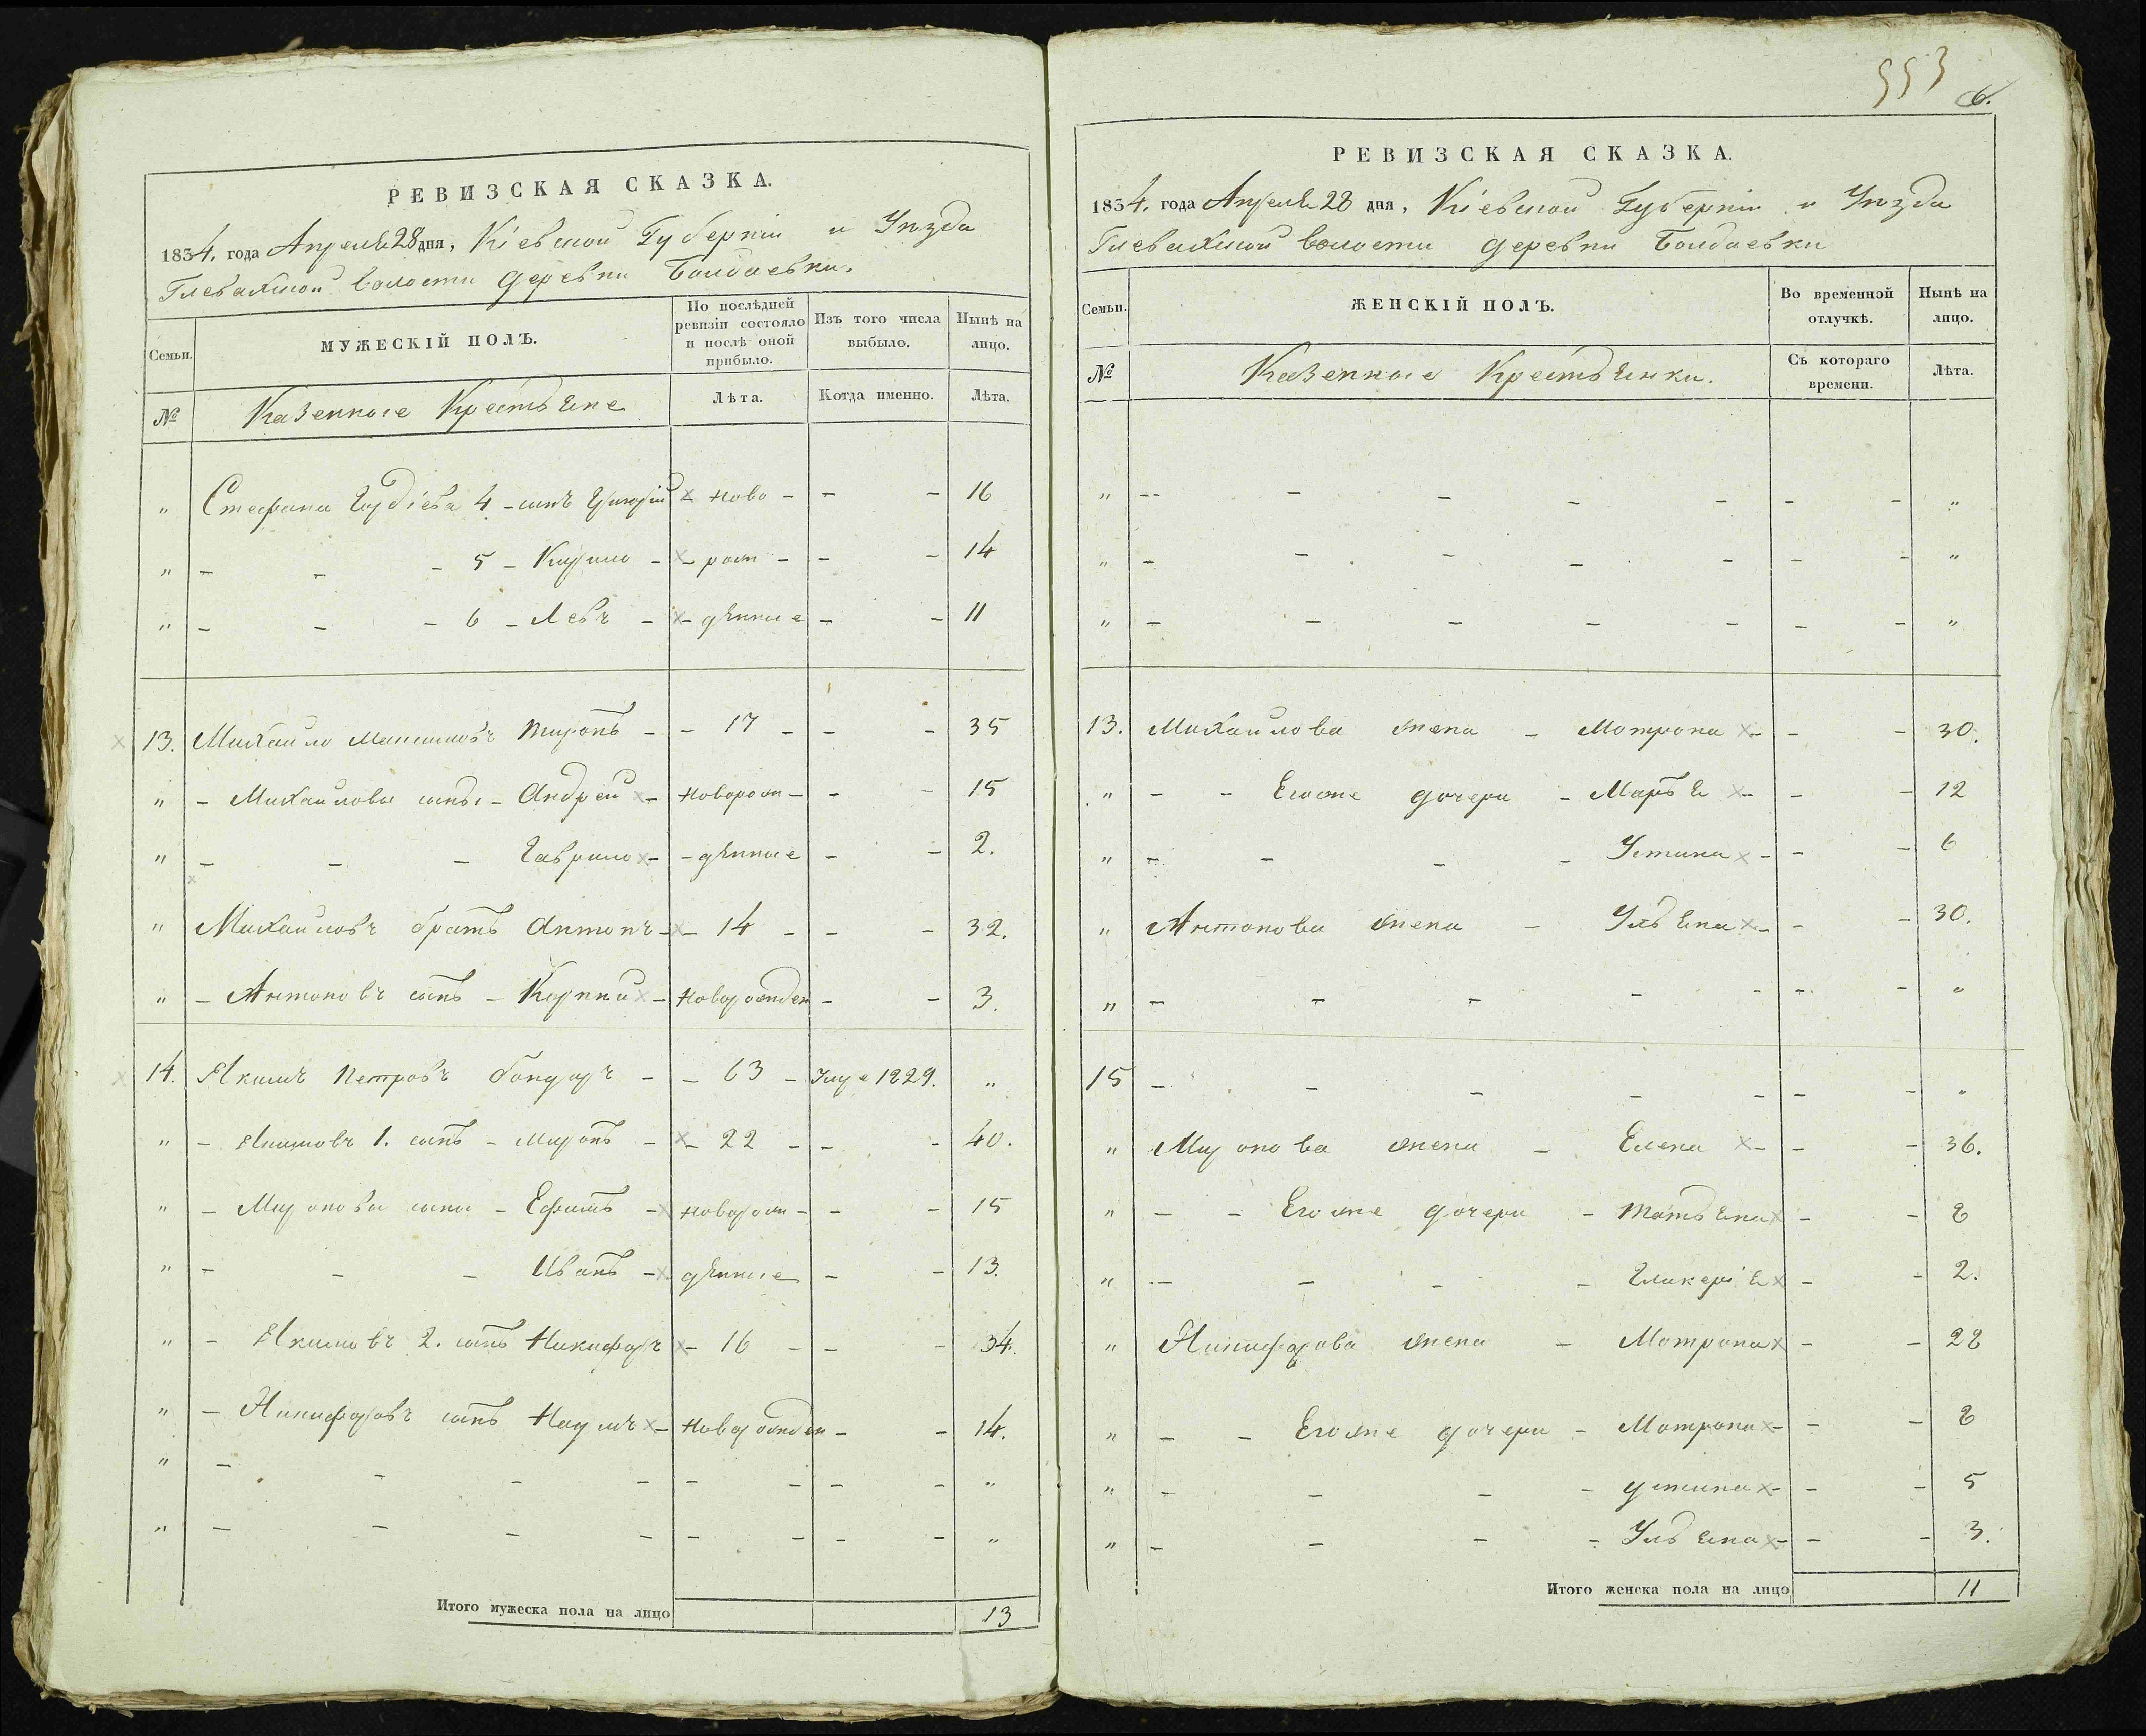 РЕВИЗСКАЯ СКАЗКА.
1834. года Апреля 28 дня, Кіевской Губерніи и Уѣзда
Глевахской волости деревни Болдаевки.
Семьи.
МУЖЕСКІЙ ПОЛЪ.
По послѣдней ревизіи состояло и послѣ оной прибыло.
Изъ того числа выбыло.
Нынѣ на лицо.
№
Казенные Крестьяне
Лѣта.
Когда именно.
Лѣта.
" Стефана 4 - сынъ Григорій - ново - - - 16
" - - - 5 - Кирило - - рож - - - 14
" - - - 6 - Левъ - - денные - - 11
13. Михайло Миронъ - - 17 - - - 35
" - Михайловы сыны - Андрей - новорож - - - 15
" - - - Гаврило - - денные - - 2.
" Михайловъ братъ Антонъ - - 14 - - - 32.
" - Антоновъ сынъ - - Новорожден - - 3.
14. Якимъ Петровъ бондарь - - 63 - Умре 1829. "
" - Якимовъ 1. сынъ - Миронъ - - 22 - - - 40.
" - Миронова сыны - Ефимъ - новорож - - - 15
" - - - Иванъ - денные - - 13.
" - Якимовъ 2. сынъ Никифоръ - 16 - - - 34.
" - Никифоровъ сынъ Наумъ - Новорожден - - 14.
" - - - - - - - - "
" - - - - - - - - "
Итого мужеска пола на лицо 13
553
6.
РЕВИЗСКАЯ СКАЗКА.
1834. года Апреля 28 дня, Кіевской Губерніи и Уѣзда
Глевахской волости деревни Болдаевки
Семьи.
ЖЕНСКІЙ ПОЛЪ.
Во временной отлучкѣ.
Нынѣ на лицо.
№
Казенные Крестьянки.
Съ котораго времени.
Лѣта.
" - - - - - - - "
" - - - - - - - "
" - - - - - - - "
13. Михайлова жена - Мотрона - - - 30.
" - - Егоже дочери - Марья - - - 12
" - - - - Устина - - - 6
" Антонова жена - Ульяна - - - 30.
" - - - - - - - "
15 - - - - - - - "
" Миронова жена - Елена - - - 36.
" - - Егоже дочери - Татьяна - - 8
" - - - - Гликерія - - 2.
" Никифорова жена - Мотрона - - 28
" - - Егоже дочери - Мотрона - - - 8
" - - - - Устина - - - 5
" - - - - Ульяна - - - 3.
Итого женска пола на лицо 11